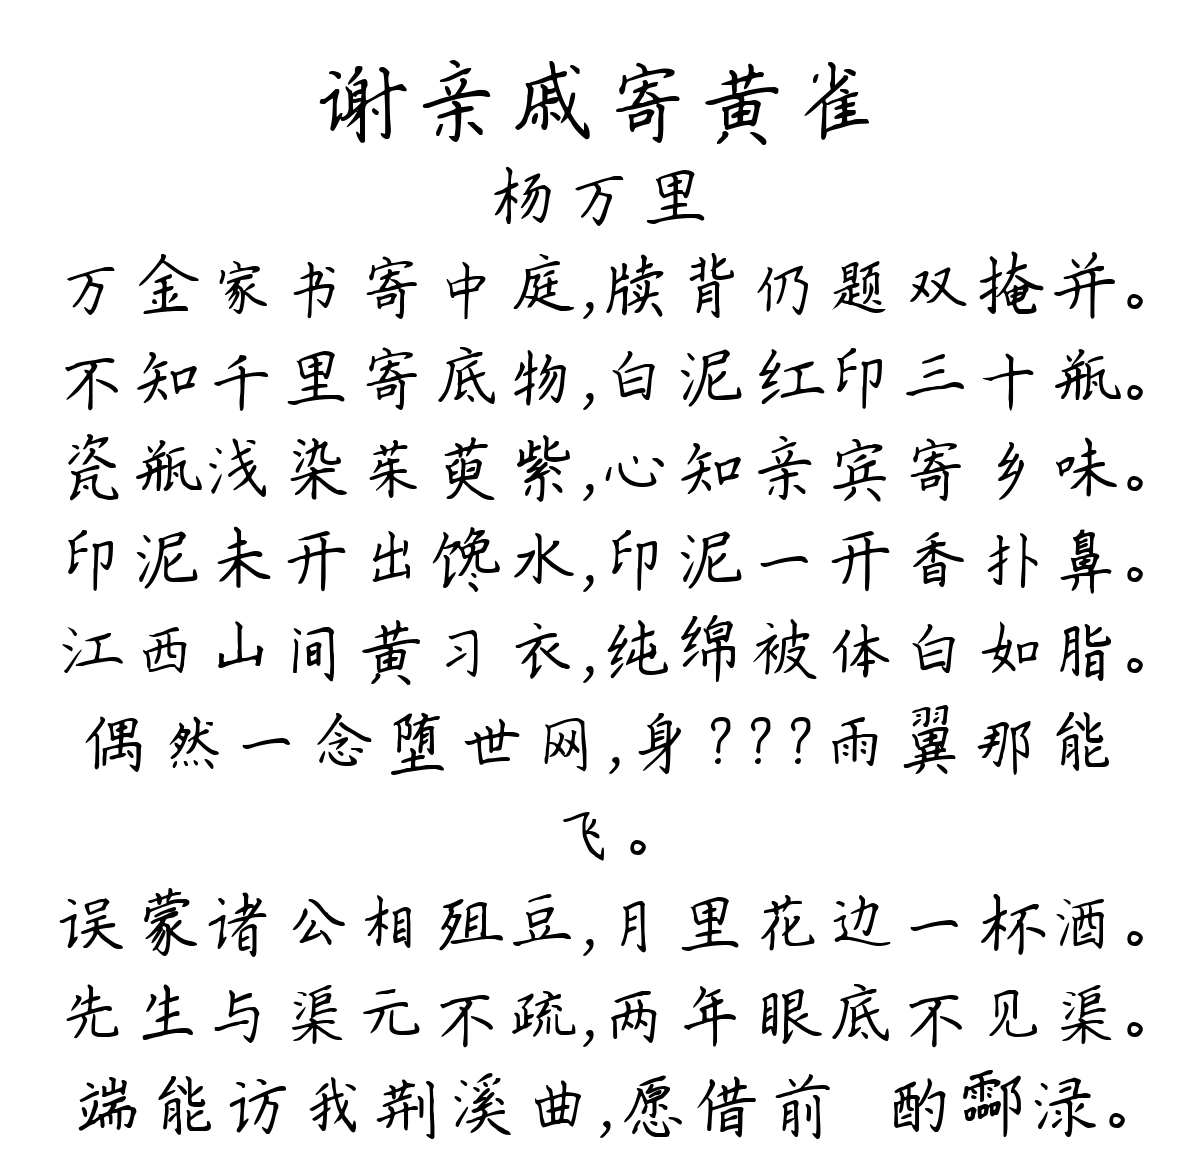 谢亲戚寄黄雀
杨万里
万金家书寄中庭,牍背仍题双掩并。
不知千里寄底物,白泥红印三十瓶。
瓷瓶浅染茱萸紫,心知亲宾寄乡味。
印泥未开出馋水,印泥一开香扑鼻。
江西山间黄习衣,纯绵被体白如脂。
偶然一念堕世网,身???雨翼那能
飞。
误蒙诸公相殂豆,月里花边一杯酒。
先生与渠元不疏,两年眼底不见渠。
端能访我荆溪曲,愿借前 酌酃渌。